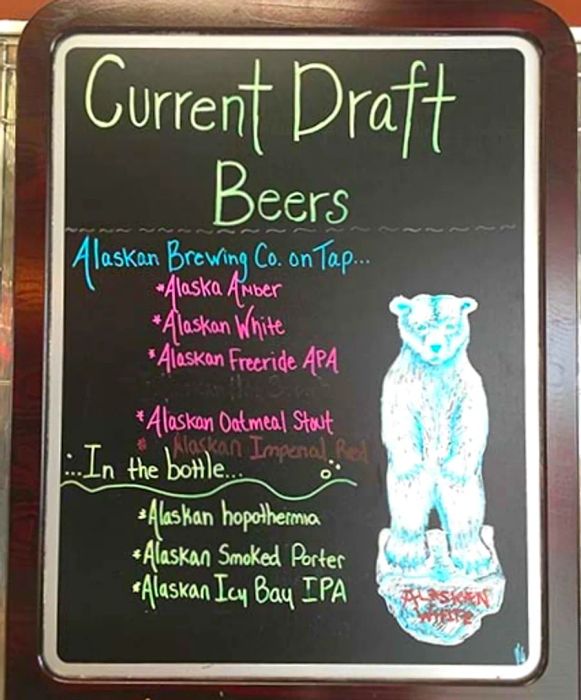 Current Draft
Beers
Alaskan Brewing Co. on Tap...
*Alaska Amber
*Alaskan White
*Alaskan Freeride APA
*Alaskan Oatmeal Stout
* Alaskan Imperial Red
...In the bottle...
*Alaskan hopothermia
*Alaskan Smoked Porter
*Alaskan Icy Bay IPA
ALASKAN
WHITE